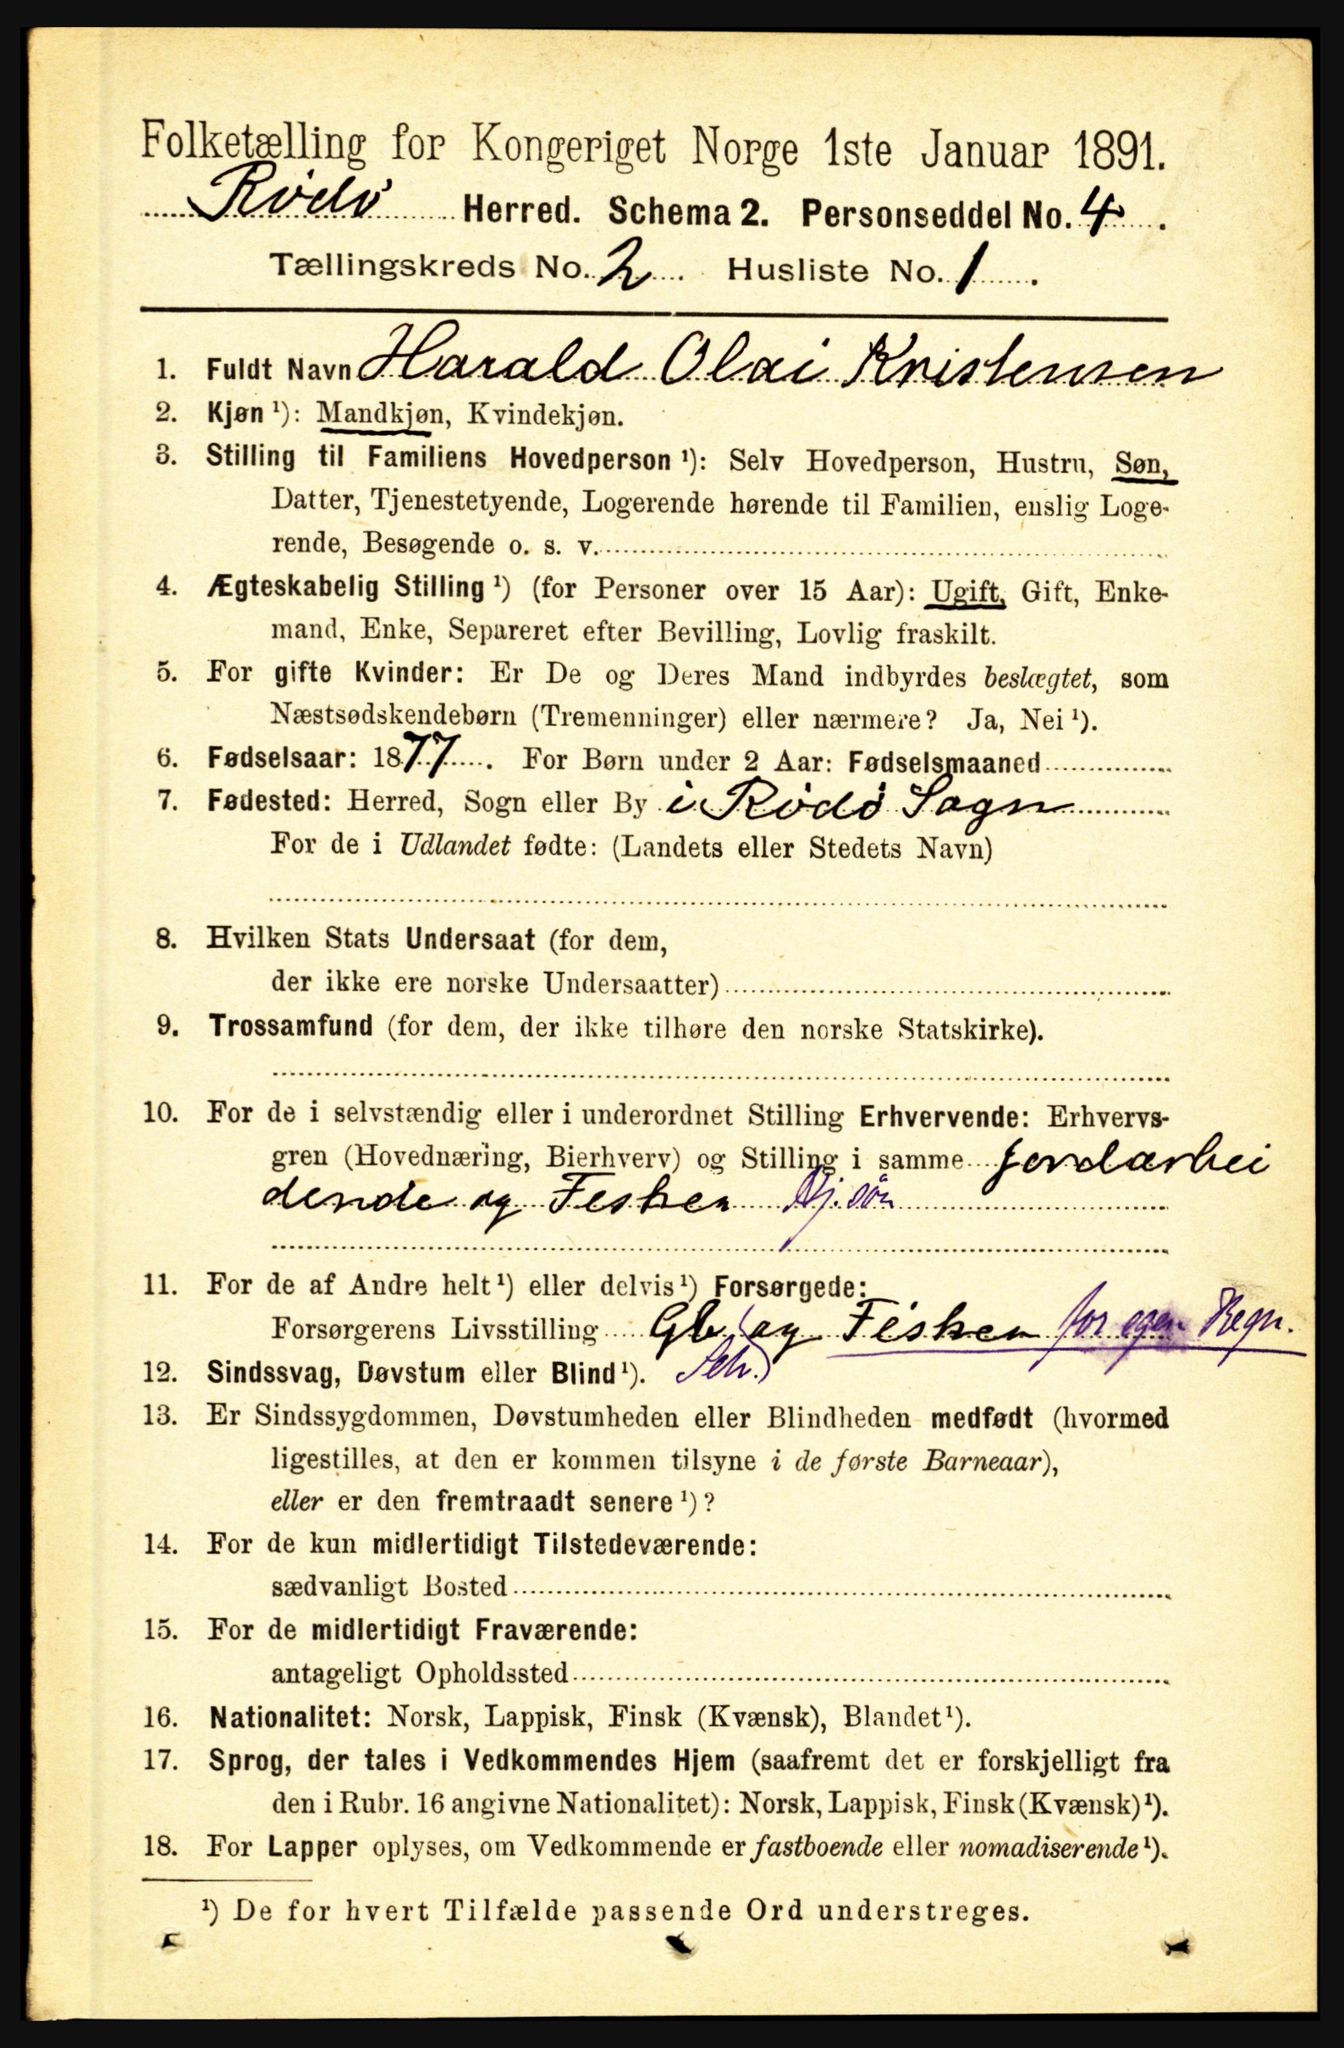 Folketælling for Kongeriget Norge 1ste Januar 1891.
Rödö Herred. Schema 2. Personseddel No. 4.
Tællingskreds No. 2. Husliste No. 1.
1. Fuldt Navn Harald Olai Kristensen
2. Kjøn ¹): Mandkjøn, Kvindekjøn.
3. Stilling til Familiens Hovedperson ¹): Selv Hovedperson, Hustru, Søn,
Datter, Tjenestetyende, Logerende hørende til Familien, enslig Loge-
rende, Besøgende o. s. v.
4. Ægteskabelig Stilling ¹) (for Personer over 15 Aar): Ugift, Gift, Enke-
mand, Enke, Separeret efter Bevilling, Lovlig fraskilt.
5. For gifte Kvinder: Er De og Deres Mand indbyrdes beslægtet, som
Næstsødskendebørn (Tremenninger) eller nærmere? Ja, Nei ¹).
6. Fødselsaar: 1877. For Børn under 2 Aar: Fødselsmaaned
7. Fødested: Herred, Sogn eller By i Rödö Sogn
For de i Udlandet fødte: (Landets eller Stedets Navn)
8. Hvilken Stats Undersaat (for dem,
der ikke ere norske Undersaatter)
9. Trossamfund (for dem, der ikke tilhøre den norske Statskirke).
10. For de i selvstændig eller i underordnet Stilling Erhvervende: Erhvervs-
gren (Hovednæring, Bierhverv) og Stilling i samme jordarbei
dende og Fesker Hj. sön
11. For de af Andre helt ¹) eller delvis ¹) Forsørgede:
Forsørgerens Livsstilling Gb og Fisker for egen Regn.
12. Sindssvag, Døvstum eller Blind ¹). Selv.)
13. Er Sindssygdommen, Døvstumheden eller Blindheden medfødt (hvormed
ligestilles, at den er kommen tilsyne i de første Barneaar),
eller er den fremtraadt senere ¹)?
14. For de kun midlertidigt Tilstedeværende:
sædvanligt Bosted
15. For de midlertidigt Fraværende:
antageligt Opholdssted
16. Nationalitet: Norsk, Lappisk, Finsk (Kvænsk), Blandet ¹).
17. Sprog, der tales i Vedkommendes Hjem (saafremt det er forskjelligt fra
den i Rubr. 16 angivne Nationalitet): Norsk, Lappisk, Finsk (Kvænsk) ¹).
18. For Lapper oplyses, om Vedkommende er fastboende eller nomadiserende ¹).
¹) De for hvert Tilfælde passende Ord understreges.